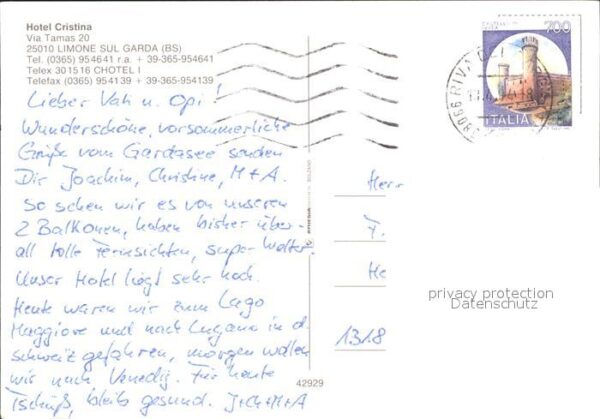 Hotel Cristina
Via Tamas 20
25010 LIMONE SUL GARDA (BS)
Tel. (0365) 954641 r.a. + 39-365-954641
Telex 301516 CHOTEL I
Telefax (0365) 954139 + 39-365-954139
Lieber Vati u. Opi!
Wunderschöne, vorsommerliche
Grüße vom Gardasee senden
Dir Joachim, Christine, M+A.
So sehen wir es von unseren
2 Balkonen, haben bisher über-
all tolle Fernsichten, super Wetter.
Unser Hotel liegt sehr hoch.
Heute waren wir zum Lago
Maggiore und nach Lugano in d.
Schweiz gefahren, morgen wollen
wir nach Venedig. Für heute
Tschüß, bleib gesund. J+Ch+M+A
42929
700
ITALIA
38066 RIVA
Herr
F.
He
1318
privacy protection
Datenschutz